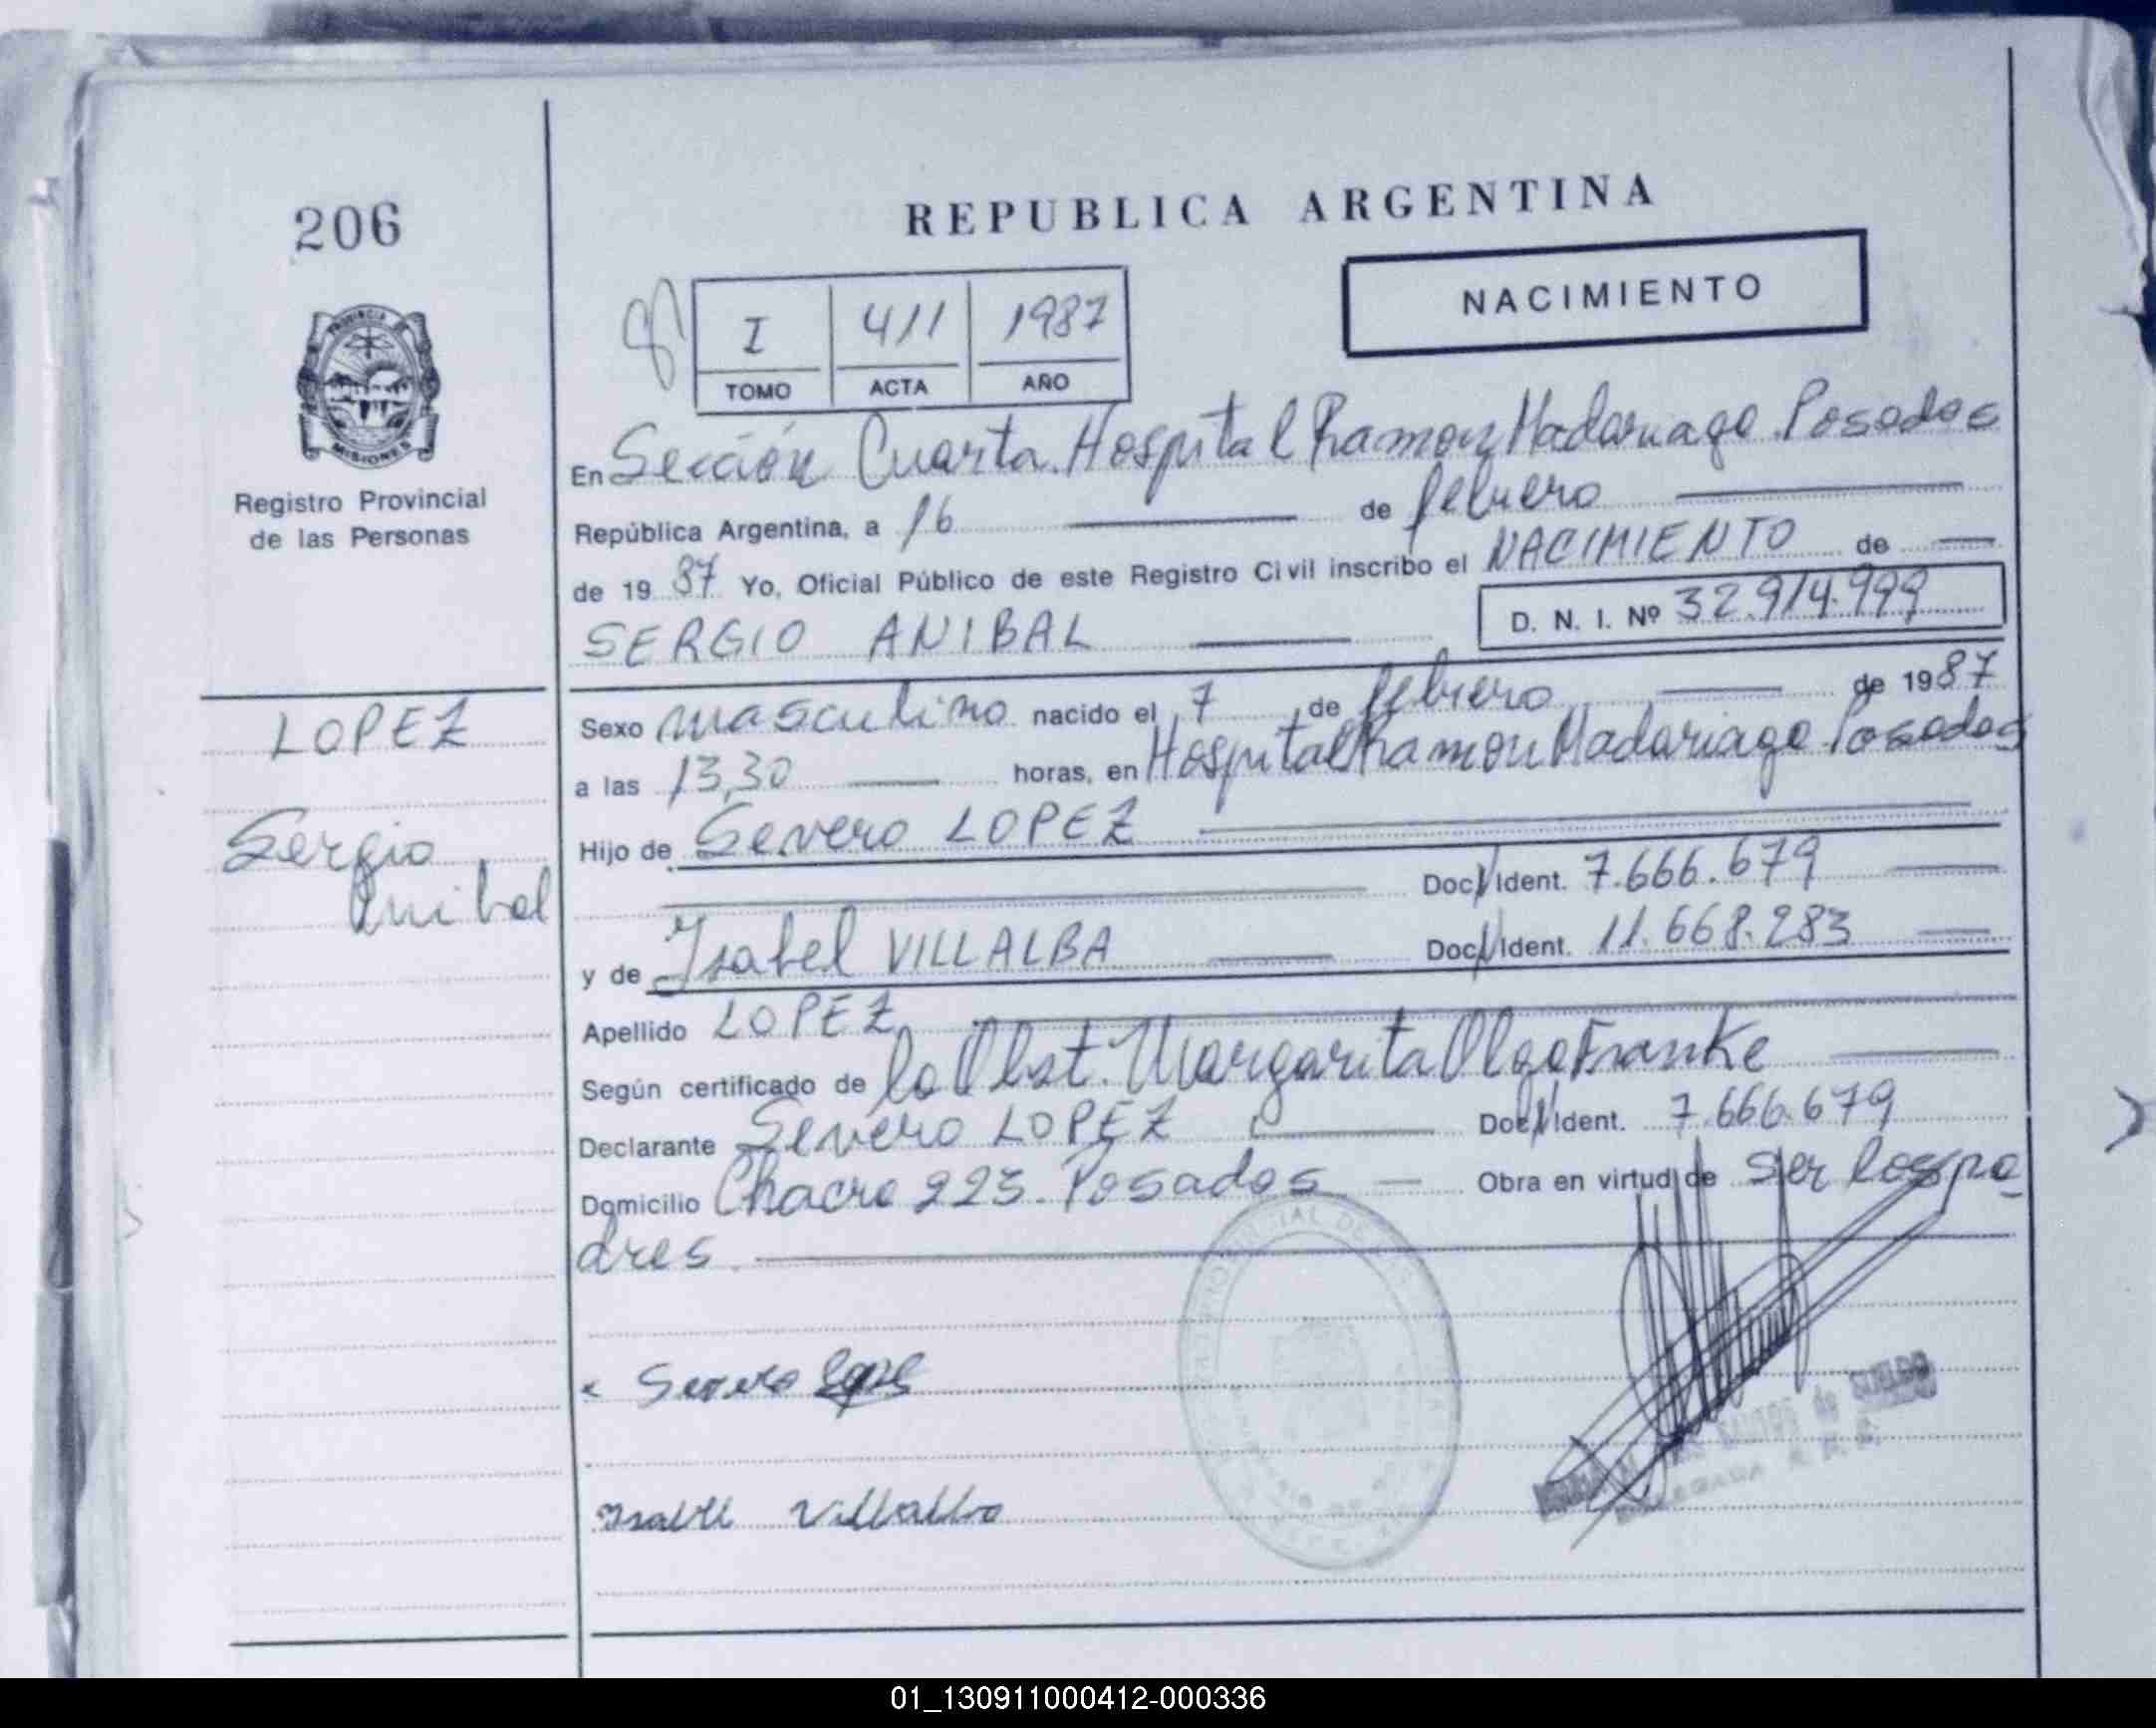 206
REPUBLICA ARGENTINA
NACIMIENTO
I 411 1987
TOMO ACTA AÑO
PROVINCIA DE
MISIONES
Registro Provincial
de las Personas
En Sección Cuarta. Hospital Ramon Madariaga. Posadas
República Argentina, a 16 de febrero
de 19 87 Yo, Oficial Público de este Registro Civil inscribo el NACIMIENTO de
SERGIO ANIBAL D. N. I. Nº 32.914.999
LOPEZ
Sergio
Anibal
Sexo masculino nacido el 7 de febrero de 1987
a las 13,30 horas, en Hospital Ramon Madariaga. Posadas
Hijo de Severo LOPEZ
Doc. Ident. 7.666.679
y de Isabel VILLALBA Doc. Ident. 11.668.283
Apellido LOPEZ
Según certificado de la Obst. Margarita Olga Franke
Declarante Severo LOPEZ Doc. Ident. 7.666.679
Domicilio Chacra 223. Posadas Obra en virtud de ser los pa
dres
Severo Lopez
Isabel Villalba
01_130911000412-000336